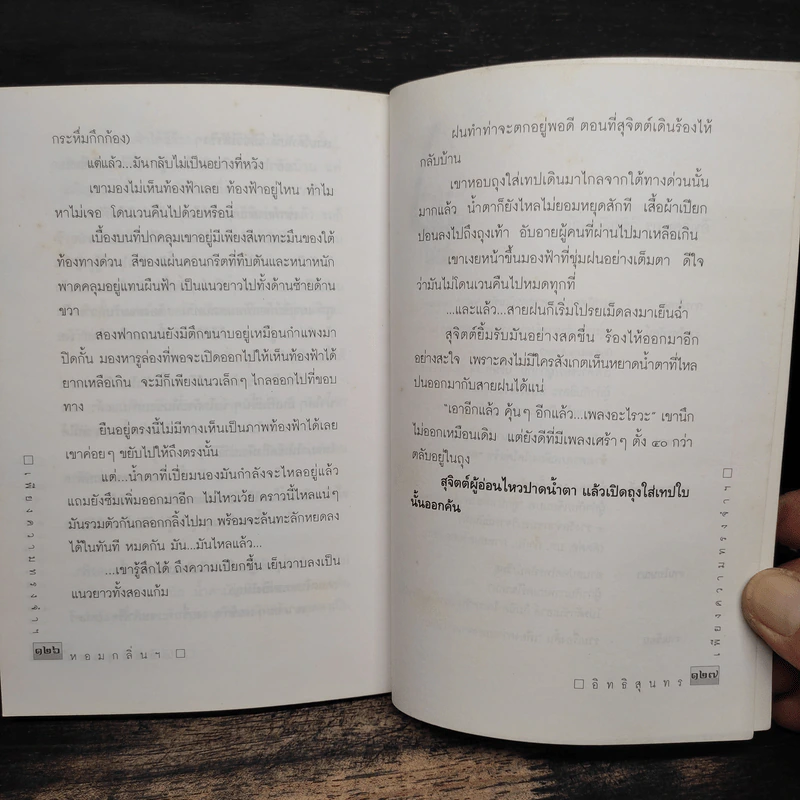 กระหึ่มกึกก้อง)
แต่แล้ว...มันกลับไม่เป็นอย่างที่หวัง
เขามองไม่เห็นท้องฟ้าเลย ท้องฟ้าอยู่ไหน ทำไม
หาไม่เจอ โดนเวนคืนไปด้วยหรือนี่
เบื้องบนที่ปกคลุมเขาอยู่มีเพียงสีเทาทะมึนของใต้
ท้องทางด่วน สีของแผ่นคอนกรีตที่ทึบตันและหนาหนัก
พาดคลุมอยู่แทนผืนฟ้า เป็นแนวยาวไปทั้งด้านซ้ายด้าน
ขวา
สองฟากถนนยังมีตึกขนาบอยู่เหมือนกำแพงมา
ปิดกั้น มองหารูล่องที่พอจะเปิดออกไปให้เห็นท้องฟ้าได้
ยากเหลือเกิน จะมีก็เพียงแนวเล็กๆ ไกลออกไปที่ขอบ
ทาง
ยืนอยู่ตรงนี้ไม่มีทางเห็นเป็นภาพท้องฟ้าได้เลย
เขาค่อยๆ ขยับไปให้ถึงตรงนั้น
แต่...น้ำตาที่เปี่ยมนองมันกำลังจะไหลอยู่แล้ว
แถมยังซึมเพิ่มออกมาอีก ไม่ไหวเว้ย คราวนี้ไหลแน่ๆ
มันรวมตัวกันกลอกกลิ้งไปมา พร้อมจะล้นทะลักหยดลง
ได้ในทันที หมดกัน มัน...มันไหลแล้ว...
...เขารู้สึกได้ ถึงความเปียกชื้น เย็นวาบลงเป็น
แนวยาวทั้งสองแก้ม
เพียงความทรงจำฯ
๑๒๖ หอมกลิ่นฯ
ฝนทำท่าจะตกอยู่พอดี ตอนที่สุจิตต์เดินร้องไห้
กลับบ้าน
เขาหอบถุงใส่เทปเดินมาไกลจากใต้ทางด่วนนั้น
มากแล้ว น้ำตาก็ยังไหลไม่ยอมหยุดสักที เสื้อผ้าเปียก
ปอนลงไปถึงถุงเท้า อับอายผู้คนที่ผ่านไปมาเหลือเกิน
เขาเงยหน้าขึ้นมองฟ้าที่ชุ่มฝนอย่างเต็มตา ดีใจ
ว่ามันไม่โดนเวนคืนไปหมดทุกที่
...และแล้ว...สายฝนก็เริ่มโปรยเม็ดลงมาเย็นฉ่ำ
สุจิตต์ยิ้มรับมันอย่างสดชื่น ร้องไห้ออกมาอีก
อย่างสะใจ เพราะคงไม่มีใครสังเกตเห็นหยาดน้ำตาที่ไหล
ปนออกมากับสายฝนได้แน่
"เอาอีกแล้ว คุ้นๆ อีกแล้ว...เพลงอะไรวะ" เขานึก
ไม่ออกเหมือนเดิม แต่ยังดีที่มีเพลงเศร้าๆ ตั้ง ๔๐ กว่า
ตลับอยู่ในถุง
สุจิตต์ผู้อ่อนไหวปาดน้ำตา แล้วเปิดถุงใส่เทปใบ
นั้นออกค้น
เพียงความทรงจำฯ
อิทธิสุนทร ๑๒๗